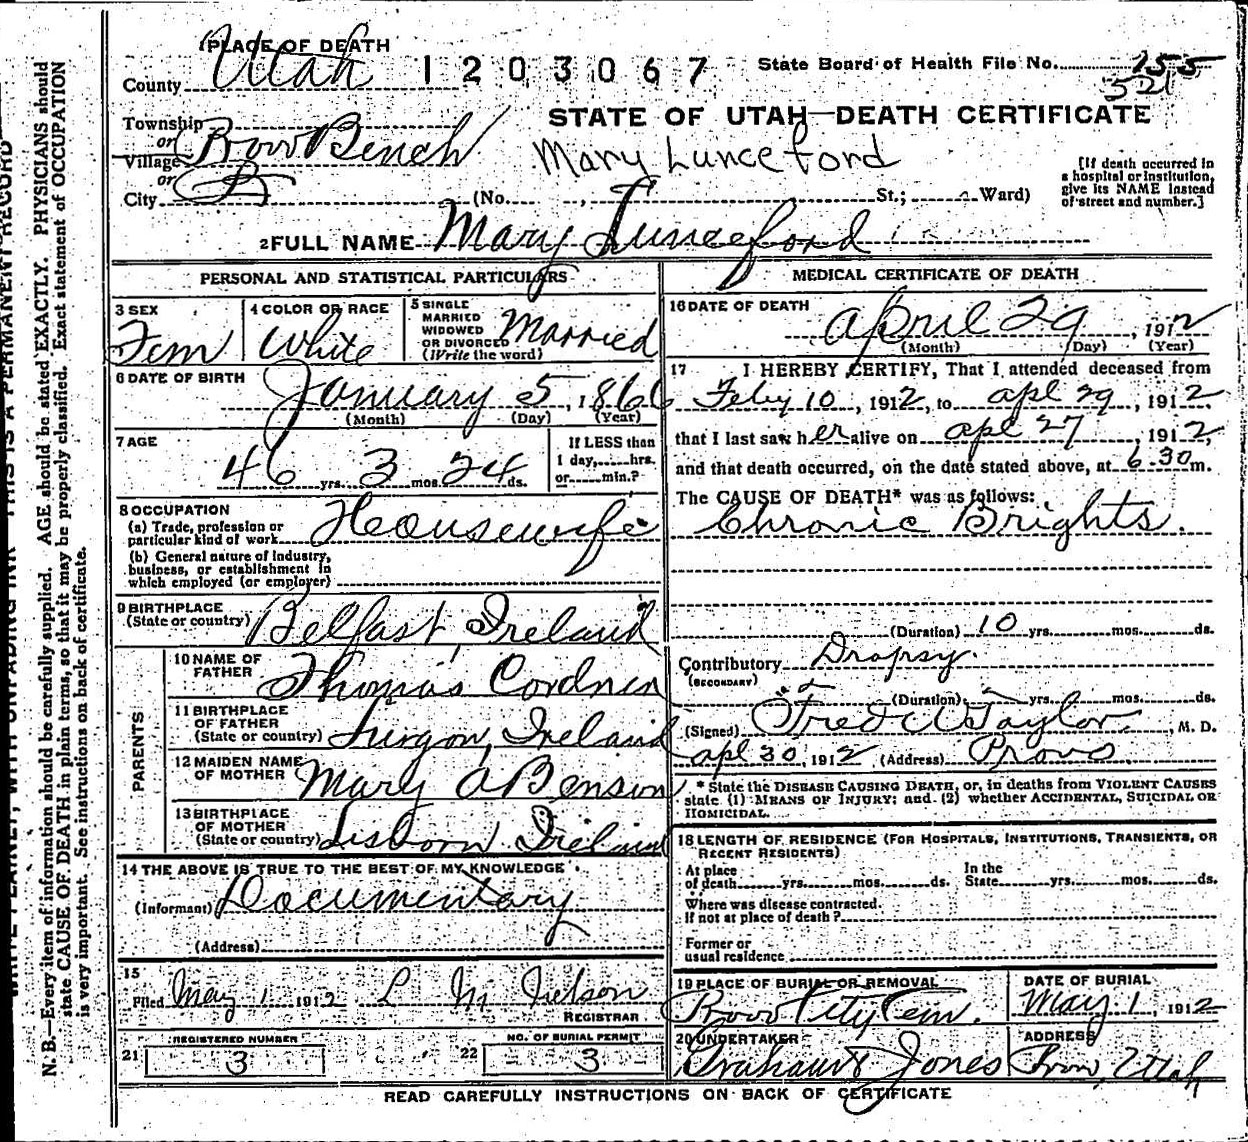 PLACE OF DEATH
County Utah 1203067 State Board of Health File No. 155
521
STATE OF UTAH—DEATH CERTIFICATE
Township
or
Village Provo Bench Mary Lunceford
or
City (No. , St.; Ward)
[If death occurred in
a hospital or institution,
give its NAME instead
of street and number.]
2 FULL NAME Mary Lunceford
PERSONAL AND STATISTICAL PARTICULARS
3 SEX
Fem
4 COLOR OR RACE
White
5 SINGLE
MARRIED
WIDOWED
OR DIVORCED
(Write the word)
Married
6 DATE OF BIRTH
January 5, 1866
(Month) (Day) (Year)
7 AGE
46 yrs. 3 mos. 24 ds.
If LESS than
1 day,.....hrs.
or.....min.?
8 OCCUPATION
(a) Trade, profession or
particular kind of work Housewife
(b) General nature of industry,
business, or establishment in
which employed (or employer)
9 BIRTHPLACE
(State or country) Belfast, Ireland
PARENTS
10 NAME OF
FATHER Thomas Cordner
11 BIRTHPLACE
OF FATHER
(State or country) Lurgon, Ireland
12 MAIDEN NAME
OF MOTHER Mary A Benson
13 BIRTHPLACE
OF MOTHER
(State or country) Lisborn Ireland
14 THE ABOVE IS TRUE TO THE BEST OF MY KNOWLEDGE
(Informant) Documentary
(Address)
15
Filed May 1 1912 L M
REGISTRAR
REGISTERED NUMBER
21 3
NO. OF BURIAL PERMIT
22 3
MEDICAL CERTIFICATE OF DEATH
16 DATE OF DEATH
April 29, 1912
(Month) (Day) (Year)
17 I HEREBY CERTIFY, That I attended deceased from
Feby 10, 1912, to apl 29, 1912,
that I last saw her alive on apl 27, 1912,
and that death occurred, on the date stated above, at 6-30m.
The CAUSE OF DEATH* was as follows:
Chronic Brights.
(Duration) 10 yrs. mos. ds.
Contributory Dropsy.
(SECONDARY)
(Duration) yrs. mos. ds.
(Signed) Fred W Taylor, M. D.
apl 30, 1912 (Address) Provo
* State the DISEASE CAUSING DEATH, or, in deaths from VIOLENT CAUSES
state (1) MEANS OF INJURY; and (2) whether ACCIDENTAL, SUICIDAL OR
HOMICIDAL.
18 LENGTH OF RESIDENCE (FOR HOSPITALS, INSTITUTIONS, TRANSIENTS, OR
RECENT RESIDENTS)
At place
of death yrs. mos. ds.
In the
State yrs. mos. ds.
Where was disease contracted.
If not at place of death?
Former or
usual residence
19 PLACE OF BURIAL OR REMOVAL
Provo City Cem.
DATE OF BURIAL
May 1, 1912
20 UNDERTAKER
Graham & Jones
ADDRESS
Provo, Utah
READ CAREFULLY INSTRUCTIONS ON BACK OF CERTIFICATE
N. B.—Every item of information should be carefully supplied. AGE should be stated EXACTLY. PHYSICIANS should
state CAUSE OF DEATH in plain terms, so that it may be properly classified. Exact statement of OCCUPATION
is very important. See instructions on back of certificate.